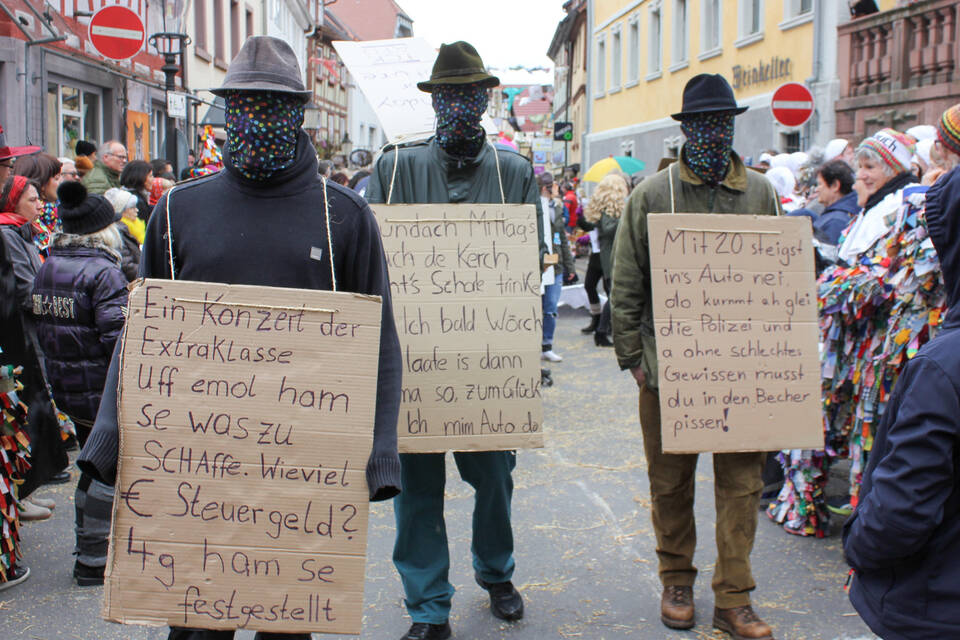 Ein Konzert der
Extraklasse
Uff emol ham
se was zu
SCHAffe. Wieviel
€ Steuergeld?
4g ham se
festgestellt
undach Mittags
ch de Kerch
nt's Schale trinke
Ich bald Wörch
laafe is dann
na so, zum Glück
Ich nim Auto do
Mit 20 steigst
in's Auto nei,
do kummt ah glei
die Polizei und
a ohne schlechtes
Gewissen musst
du in den Becher
pissen!
Weinkeller
BEST